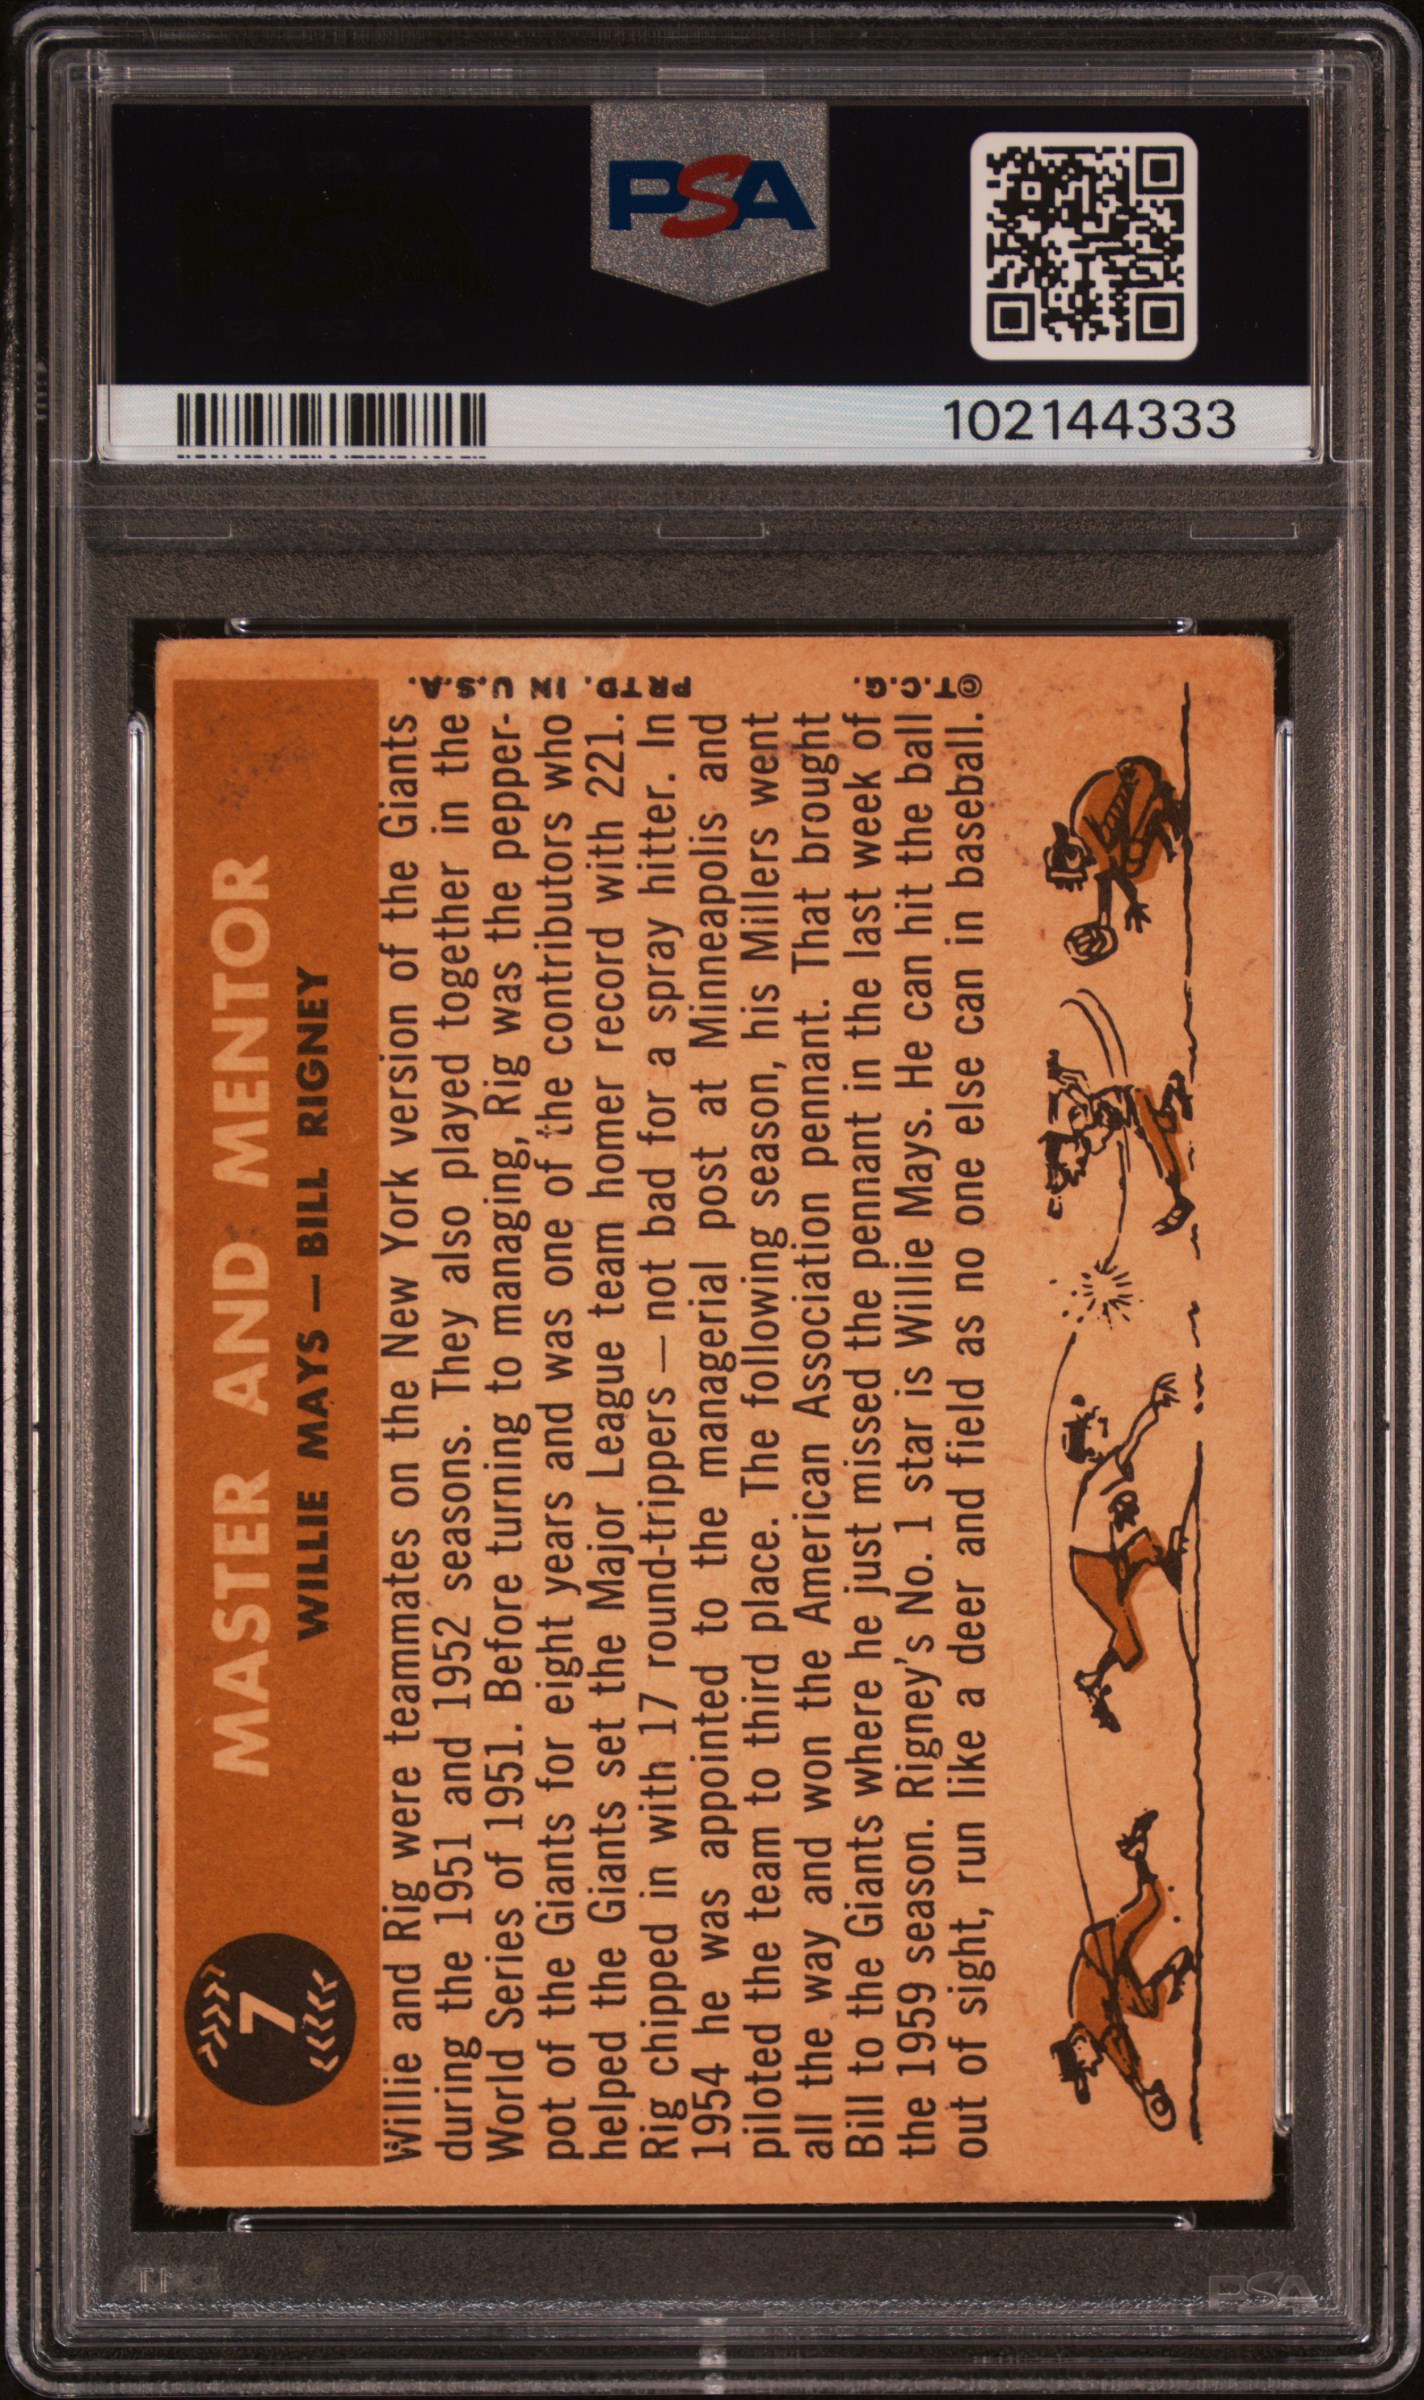 PSA
102144333
7
MASTER AND MENTOR
WILLIE MAYS — BILL RIGNEY
Willie and Rig were teammates on the New York version of the Giants
during the 1951 and 1952 seasons. They also played together in the
World Series of 1951. Before turning to managing, Rig was the pepper-
pot of the Giants for eight years and was one of the contributors who
helped the Giants set the Major League team homer record with 221.
Rig chipped in with 17 round-trippers — not bad for a spray hitter. In
1954 he was appointed to the managerial post at Minneapolis and
piloted the team to third place. The following season, his Millers went
all the way and won the American Association pennant. That brought
Bill to the Giants where he just missed the pennant in the last week of
the 1959 season. Rigney's No. 1 star is Willie Mays. He can hit the ball
out of sight, run like a deer and field as no one else can in baseball.
©T.C.G. PRTD. IN U.S.A.
PSA